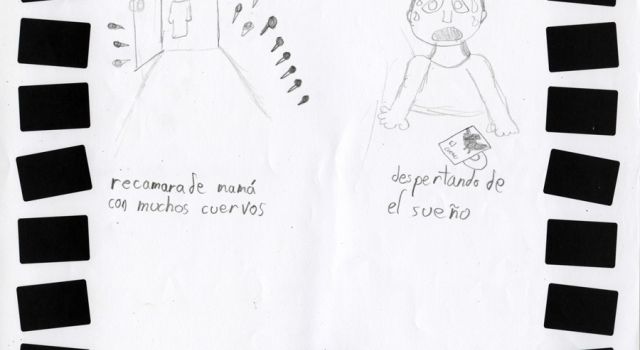 recamara de mamá
con muchos cuervos
despertando de
el sueño
El